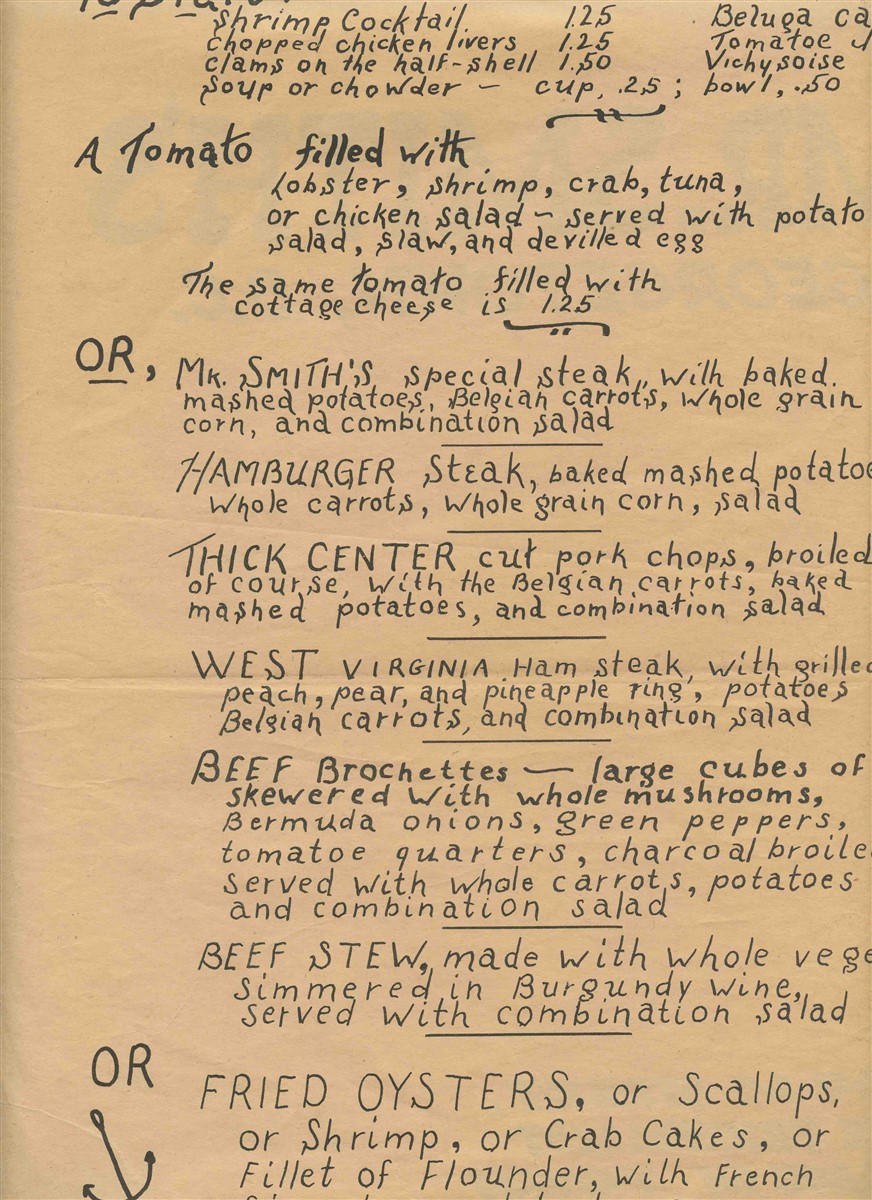 Shrimp Cocktail 1.25 Beluga
chopped chicken livers 1.25 Tomatoe
clams on the half-shell 1.50 Vichysoise
Soup or chowder — cup, .25 ; bowl, .50
A Tomato filled with
lobster, shrimp, crab, tuna,
or chicken salad — served with potato
salad, slaw, and devilled egg
The same tomato filled with
cottage cheese is 1.25
OR, MR. SMITH'S special steak, with baked.
mashed potatoes, Belgian carrots, whole grain
corn, and combination salad
HAMBURGER Steak, baked mashed potatoe
whole carrots, whole grain corn, salad
THICK CENTER cut pork chops, broiled
of course, with the Belgian carrots, baked
mashed potatoes, and combination salad
WEST VIRGINIA Ham steak, with grilled
peach, pear, and pineapple ring, potatoes
Belgian carrots, and combination salad
BEEF Brochettes — large cubes of
skewered with whole mushrooms,
Bermuda onions, green peppers,
tomatoe quarters, charcoal broile
served with whole carrots, potatoes
and combination salad
BEEF STEW, made with whole vege
simmered in Burgundy wine,
served with combination salad
OR
FRIED OYSTERS, or Scallops,
or Shrimp, or Crab Cakes, or
Fillet of Flounder, with French